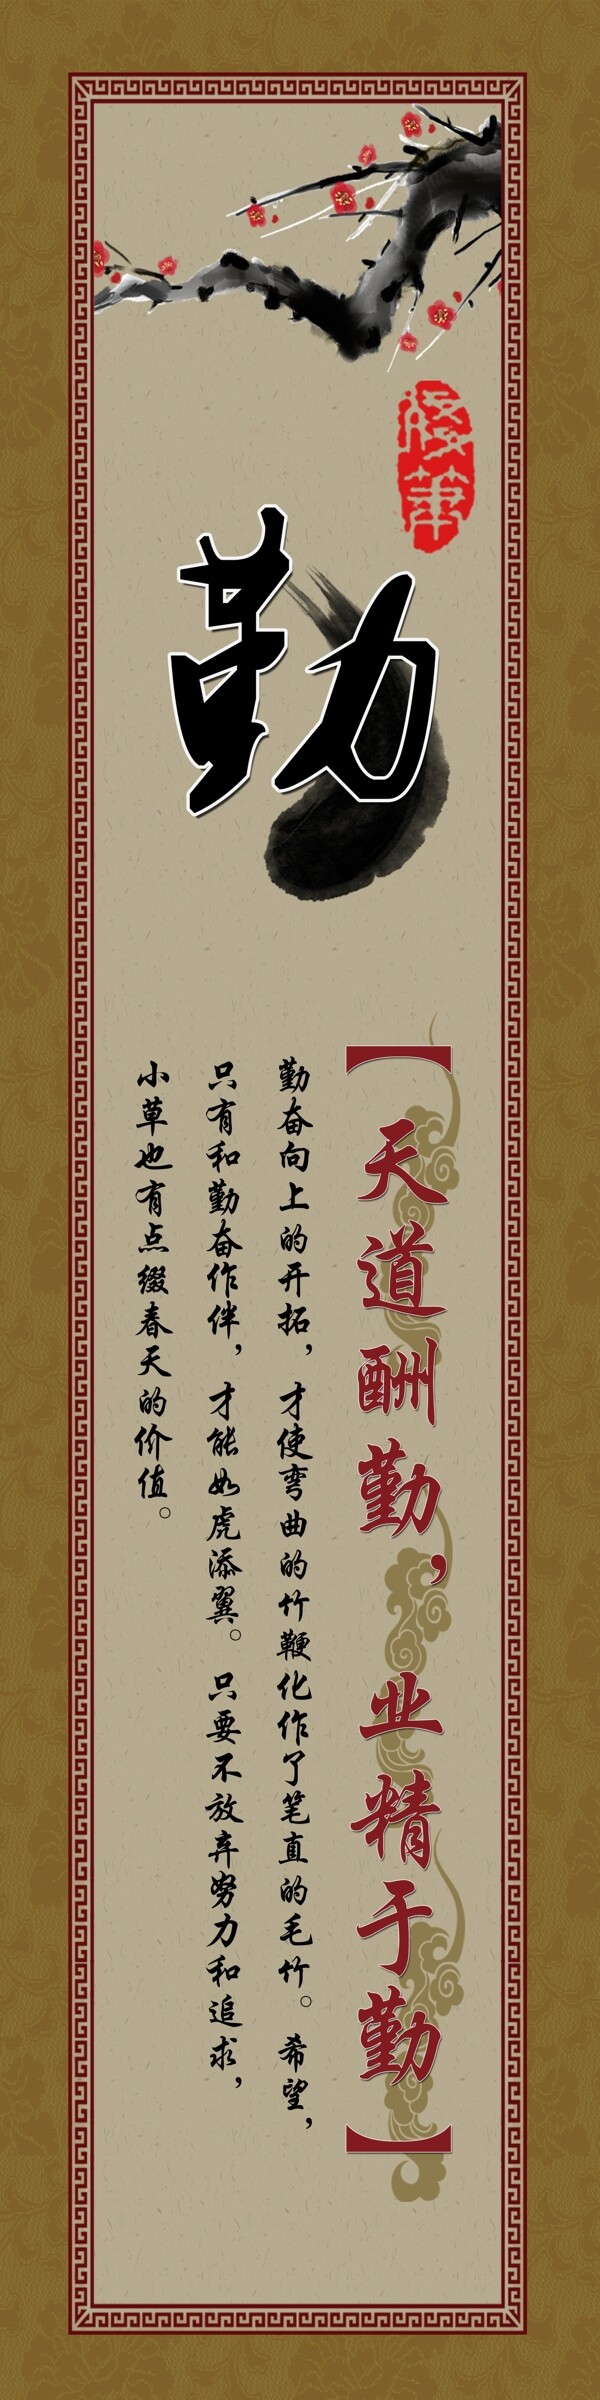 勤
【天道酬勤，业精于勤】
勤奋向上的开拓，才使弯曲的竹鞭化作了笔直的毛竹。希望，
只有和勤奋作伴，才能如虎添翼。只要不放弃努力和追求，
小草也有点缀春天的价值。